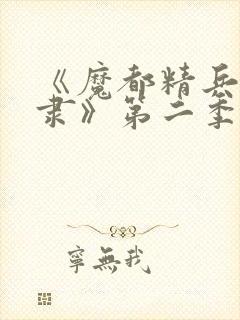 《魔都精兵
隶》第二季
宁無我